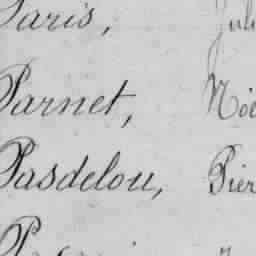 Paris,
Parnet, Noë
Pasdelou, Pier